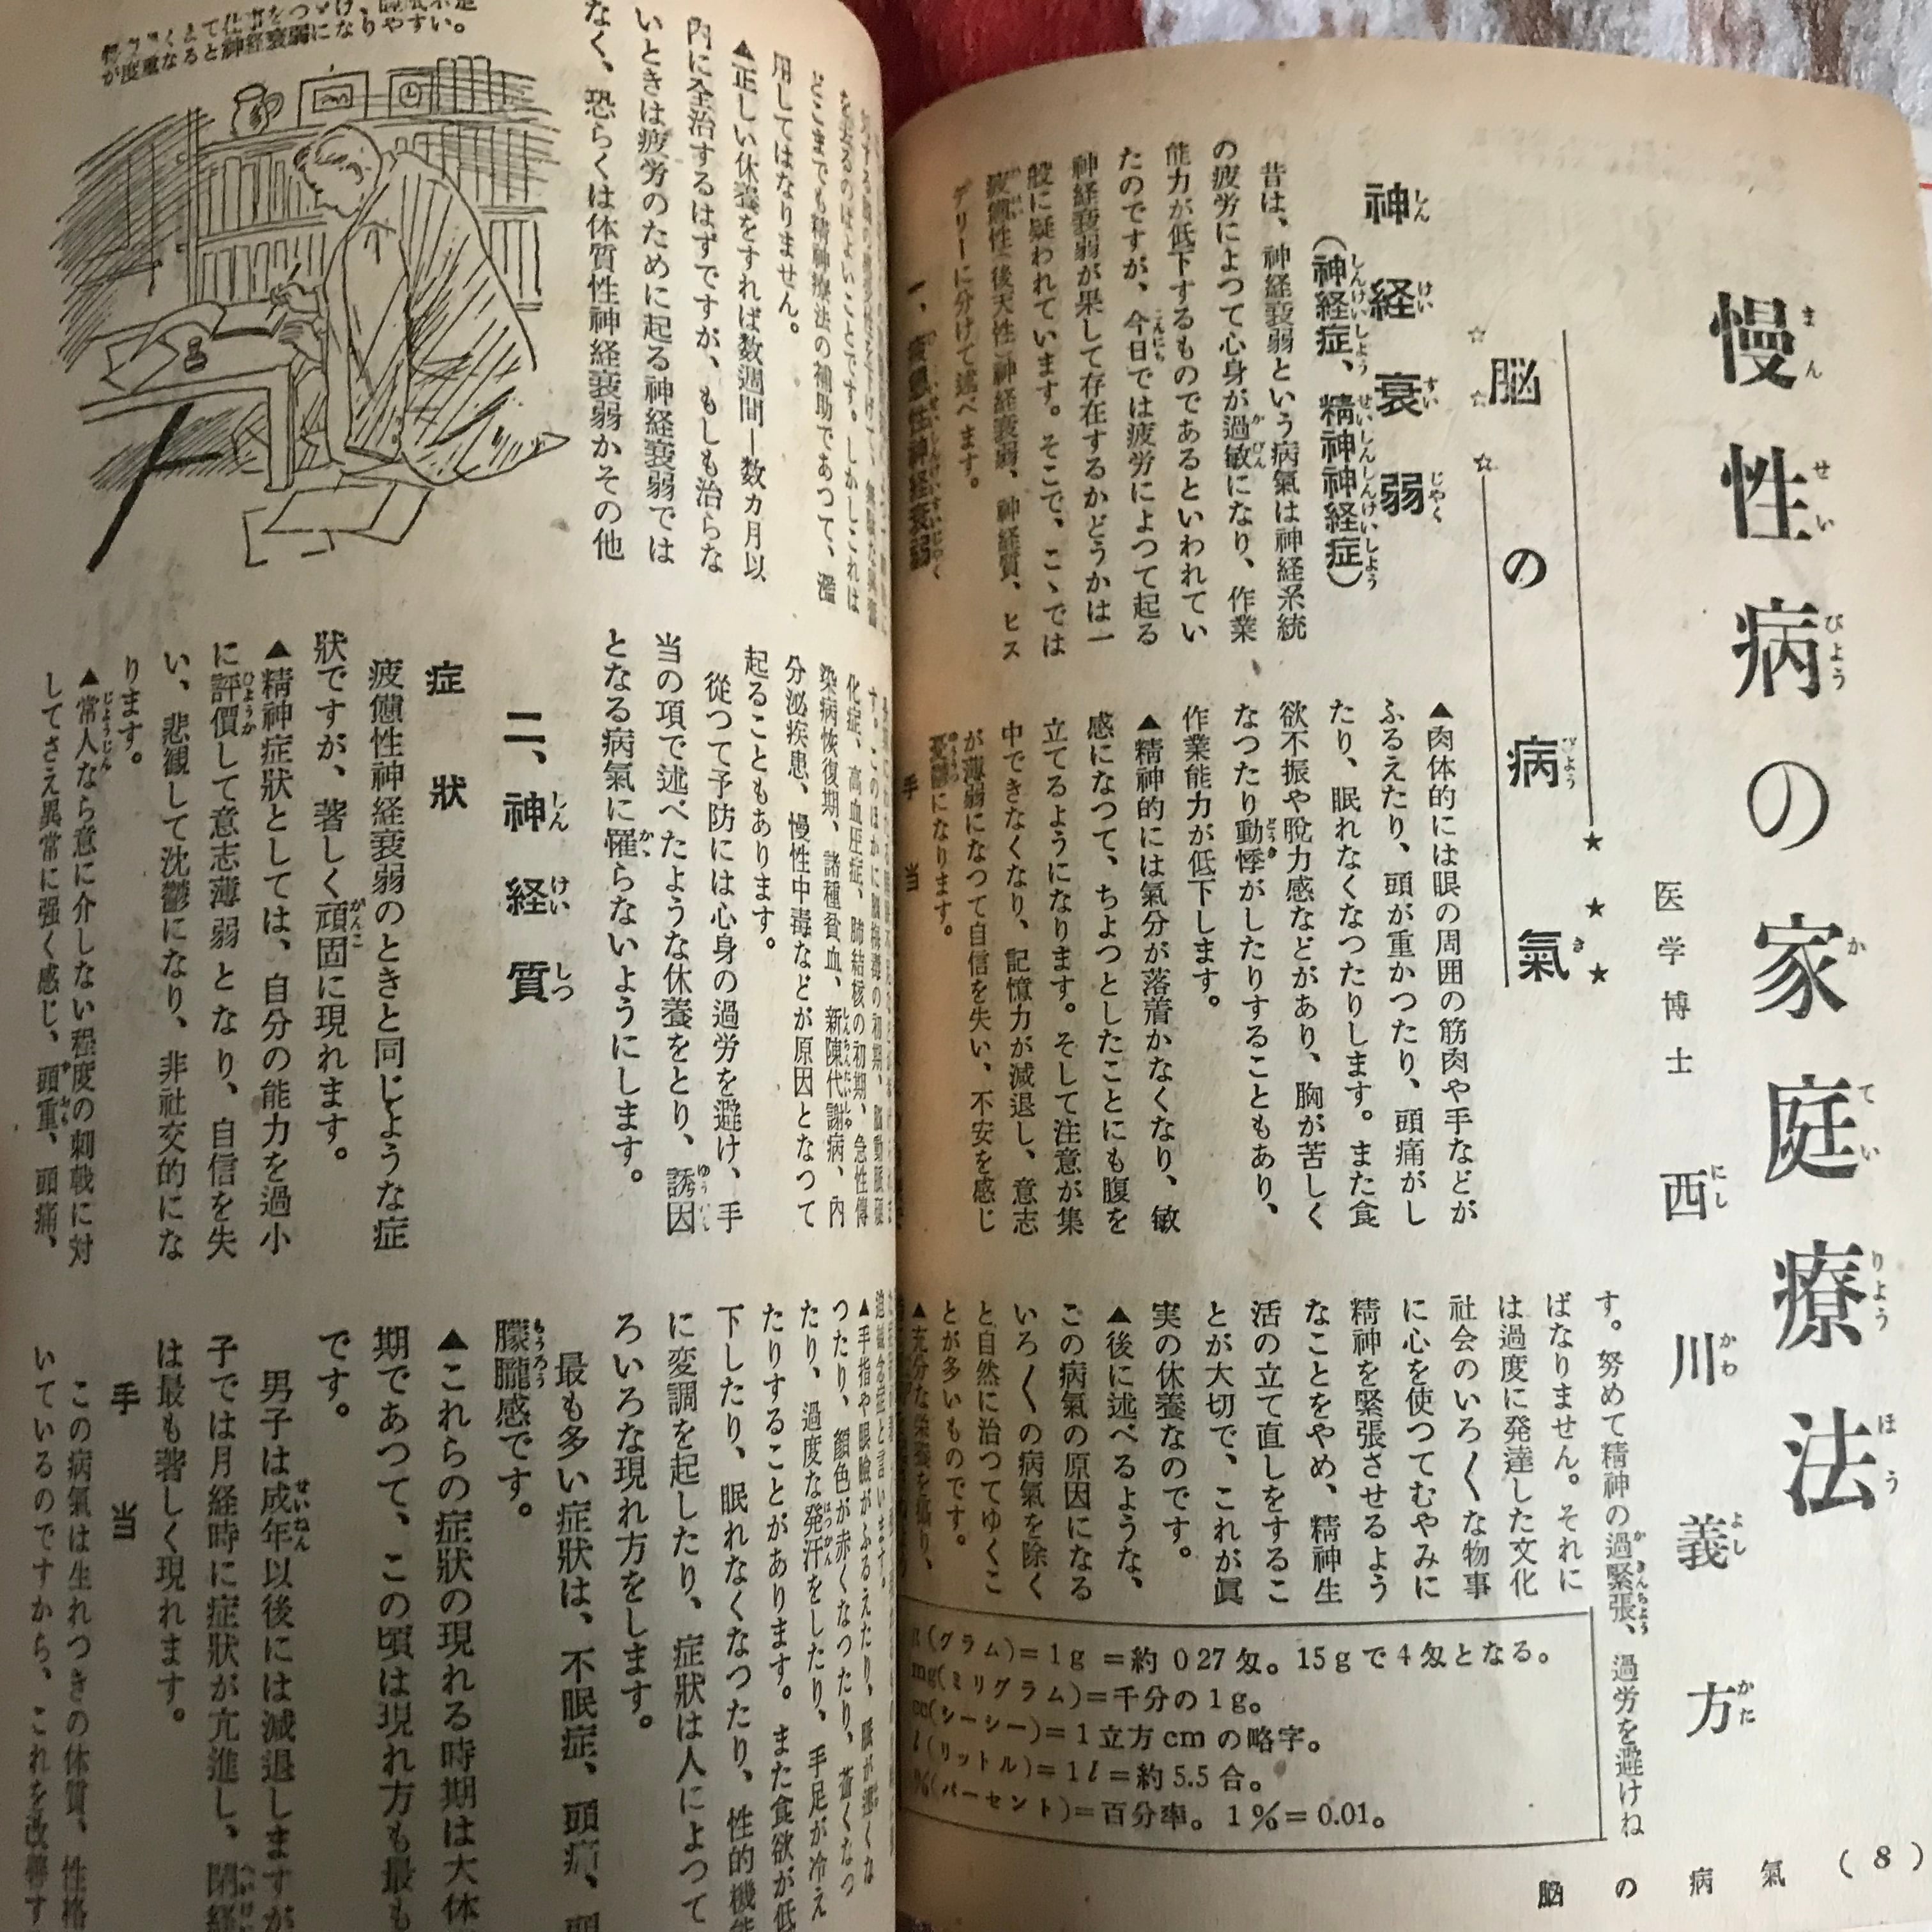 慢性病の家庭療法
医学博士 西川義方
脳の病氣
神経衰弱
(神経症、精神神経症)
昔は、神経衰弱という病氣は神経系統
の疲労によつて心身が過敏になり、作業
能力が低下するものであるといわれてい
たのですが、今日では疲労によつて起る
神経衰弱が果して存在するかどうかは一
般に疑われています。そこで、こゝでは
疲憊性(後天性)神経衰弱、神経質、ヒス
デリーに分けて述べます。
一、疲憊性神経衰弱
▲肉体的には眼の周囲の筋肉や手などが
ふるえたり、頭が重かつたり、頭痛がし
たり、眠れなくなつたりします。また食
欲不振や脱力感などがあり、胸が苦しく
なつたり動悸がしたりすることもあり、
作業能力が低下します。
▲精神的には氣分が落着かなくなり、敏
感になつて、ちよつとしたことにも腹を
立てるようになります。そして注意が集
中できなくなり、記憶力が減退し、意志
が薄弱になつて自信を失い、不安を感じ
憂鬱になります。
手当
す。努めて精神の過緊張、過労を避けね
ばなりません。それに
は過度に発達した文化
社会のいろ〱な物事
に心を使つてむやみに
精神を緊張させるよう
なことをやめ、精神生
活の立て直しをするこ
とが大切で、これが眞
実の休養なのです。
▲後に述べるような、
この病氣の原因になる
いろ〱の病氣を除く
と自然に治つてゆくこ
とが多いものです。
▲充分な栄養を攝り、
g(グラム)=1g=約027匁。15gで4匁となる。
mg(ミリグラム)=千分の1g。
cc(シーシー)=1立方cmの略字。
l(リットル)=1l=約5.5合。
%(パーセント)=百分率。1%=0.01。
脳の病氣 (8)
を去るのはよいことです。しかしこれは
どこまでも精神療法の補助であつて、濫
用してはなりません。
▲正しい休養をすれば数週間―数カ月以
内に全治するはずですが、もしも治らな
いときは疲労のために起る神経衰弱では
なく、恐らくは体質性神経衰弱かその他
が度重なると神経衰弱になりやすい。
す。このほかに脳梅毒の初期、脳動脈硬
化症、高血圧症、肺結核の初期、急性傳
染病恢復期、諸種貧血、新陳代謝病、内
分泌疾患、慢性中毒などが原因となつて
起ることもあります。
従つて予防には心身の過労を避け、手
当の項で述べたような休養をとり、誘因
となる病氣に罹らないようにします。
二、神経質
症狀
疲憊性神経衰弱のときと同じような症
狀ですが、著しく頑固に現れます。
▲精神症狀としては、自分の能力を過小
に評價して意志薄弱となり、自信を失
い、悲観して沈鬱になり、非社交的にな
ります。
▲常人なら意に介しない程度の刺戟に対
してさえ異常に强く感じ、頭重、頭痛、
迫観念症と言います。
▲手指や眼瞼がふるえたり、脈が速くな
つたり、顏色が赤くなつたり、蒼くなつ
たり、過度な発汗をしたり、手足が冷え
たりすることがあります。また食欲が低
下したり、眠れなくなつたり、性的機能
に変調を起したり、症狀は人によつて
ろいろな現れ方をします。
最も多い症狀は、不眠症、頭痛、
朦朧感です。
▲これらの症狀の現れる時期は大体
期であつて、この頃は現れ方も最も
です。
男子は成年以後には減退しますが
子では月経時に症狀が亢進し、閉経
は最も著しく現れます。
手当
この病氣は生れつきの体質、性格
いているのですから、これを改善す